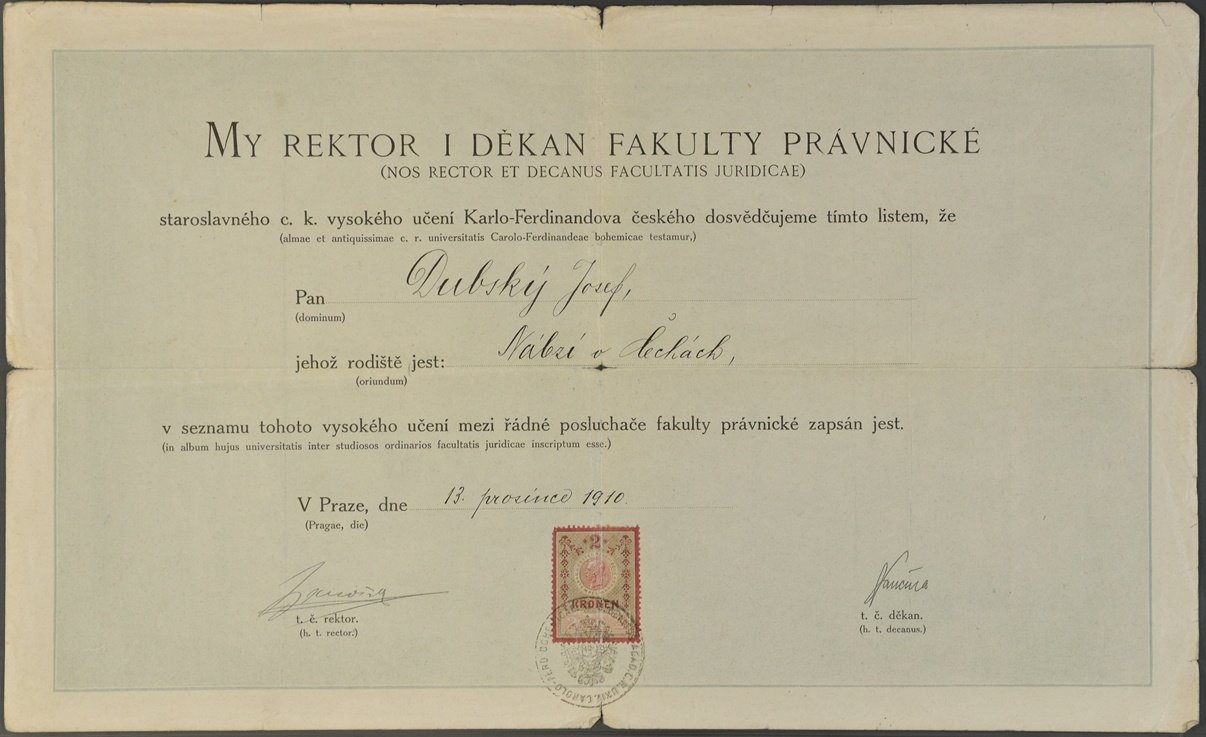 MY REKTOR I DĚKAN FAKULTY PRÁVNICKÉ
(NOS RECTOR ET DECANUS FACULTATIS JURIDICAE)
staroslavného c. k. vysokého učení Karlo-Ferdinandova českého dosvědčujeme tímto listem, že
(almae et antiquissimae c. r. universitatis Carolo-Ferdinandeae bohemicae testamur,)
Pan Dubský Josef,
(dominum)
jehož rodiště jest: v Čechách,
(oriundum)
v seznamu tohoto vysokého učení mezi řádné posluchače fakulty právnické zapsán jest.
(in album hujus universitatis inter studiosos ordinarios facultatis juridicae inscriptum esse.)
V Praze, dne 13. prosince 1910.
(Pragae, die)
2
KRONEN
t. č. rektor.
(h. t. rector.)
t. č. děkan.
(h. t. decanus.)